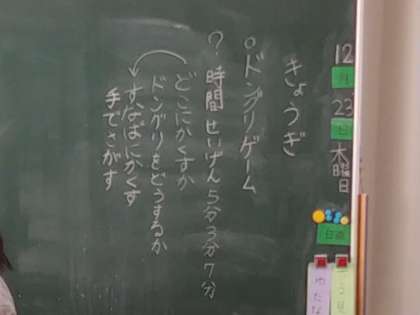 12
月
23
日
木曜日
日直
きょうぎ
○ドングリゲーム
?時間せいげん5分3分7分
どこにかくすか
ドングリをどうするか
すなばにかくす
手でさがす